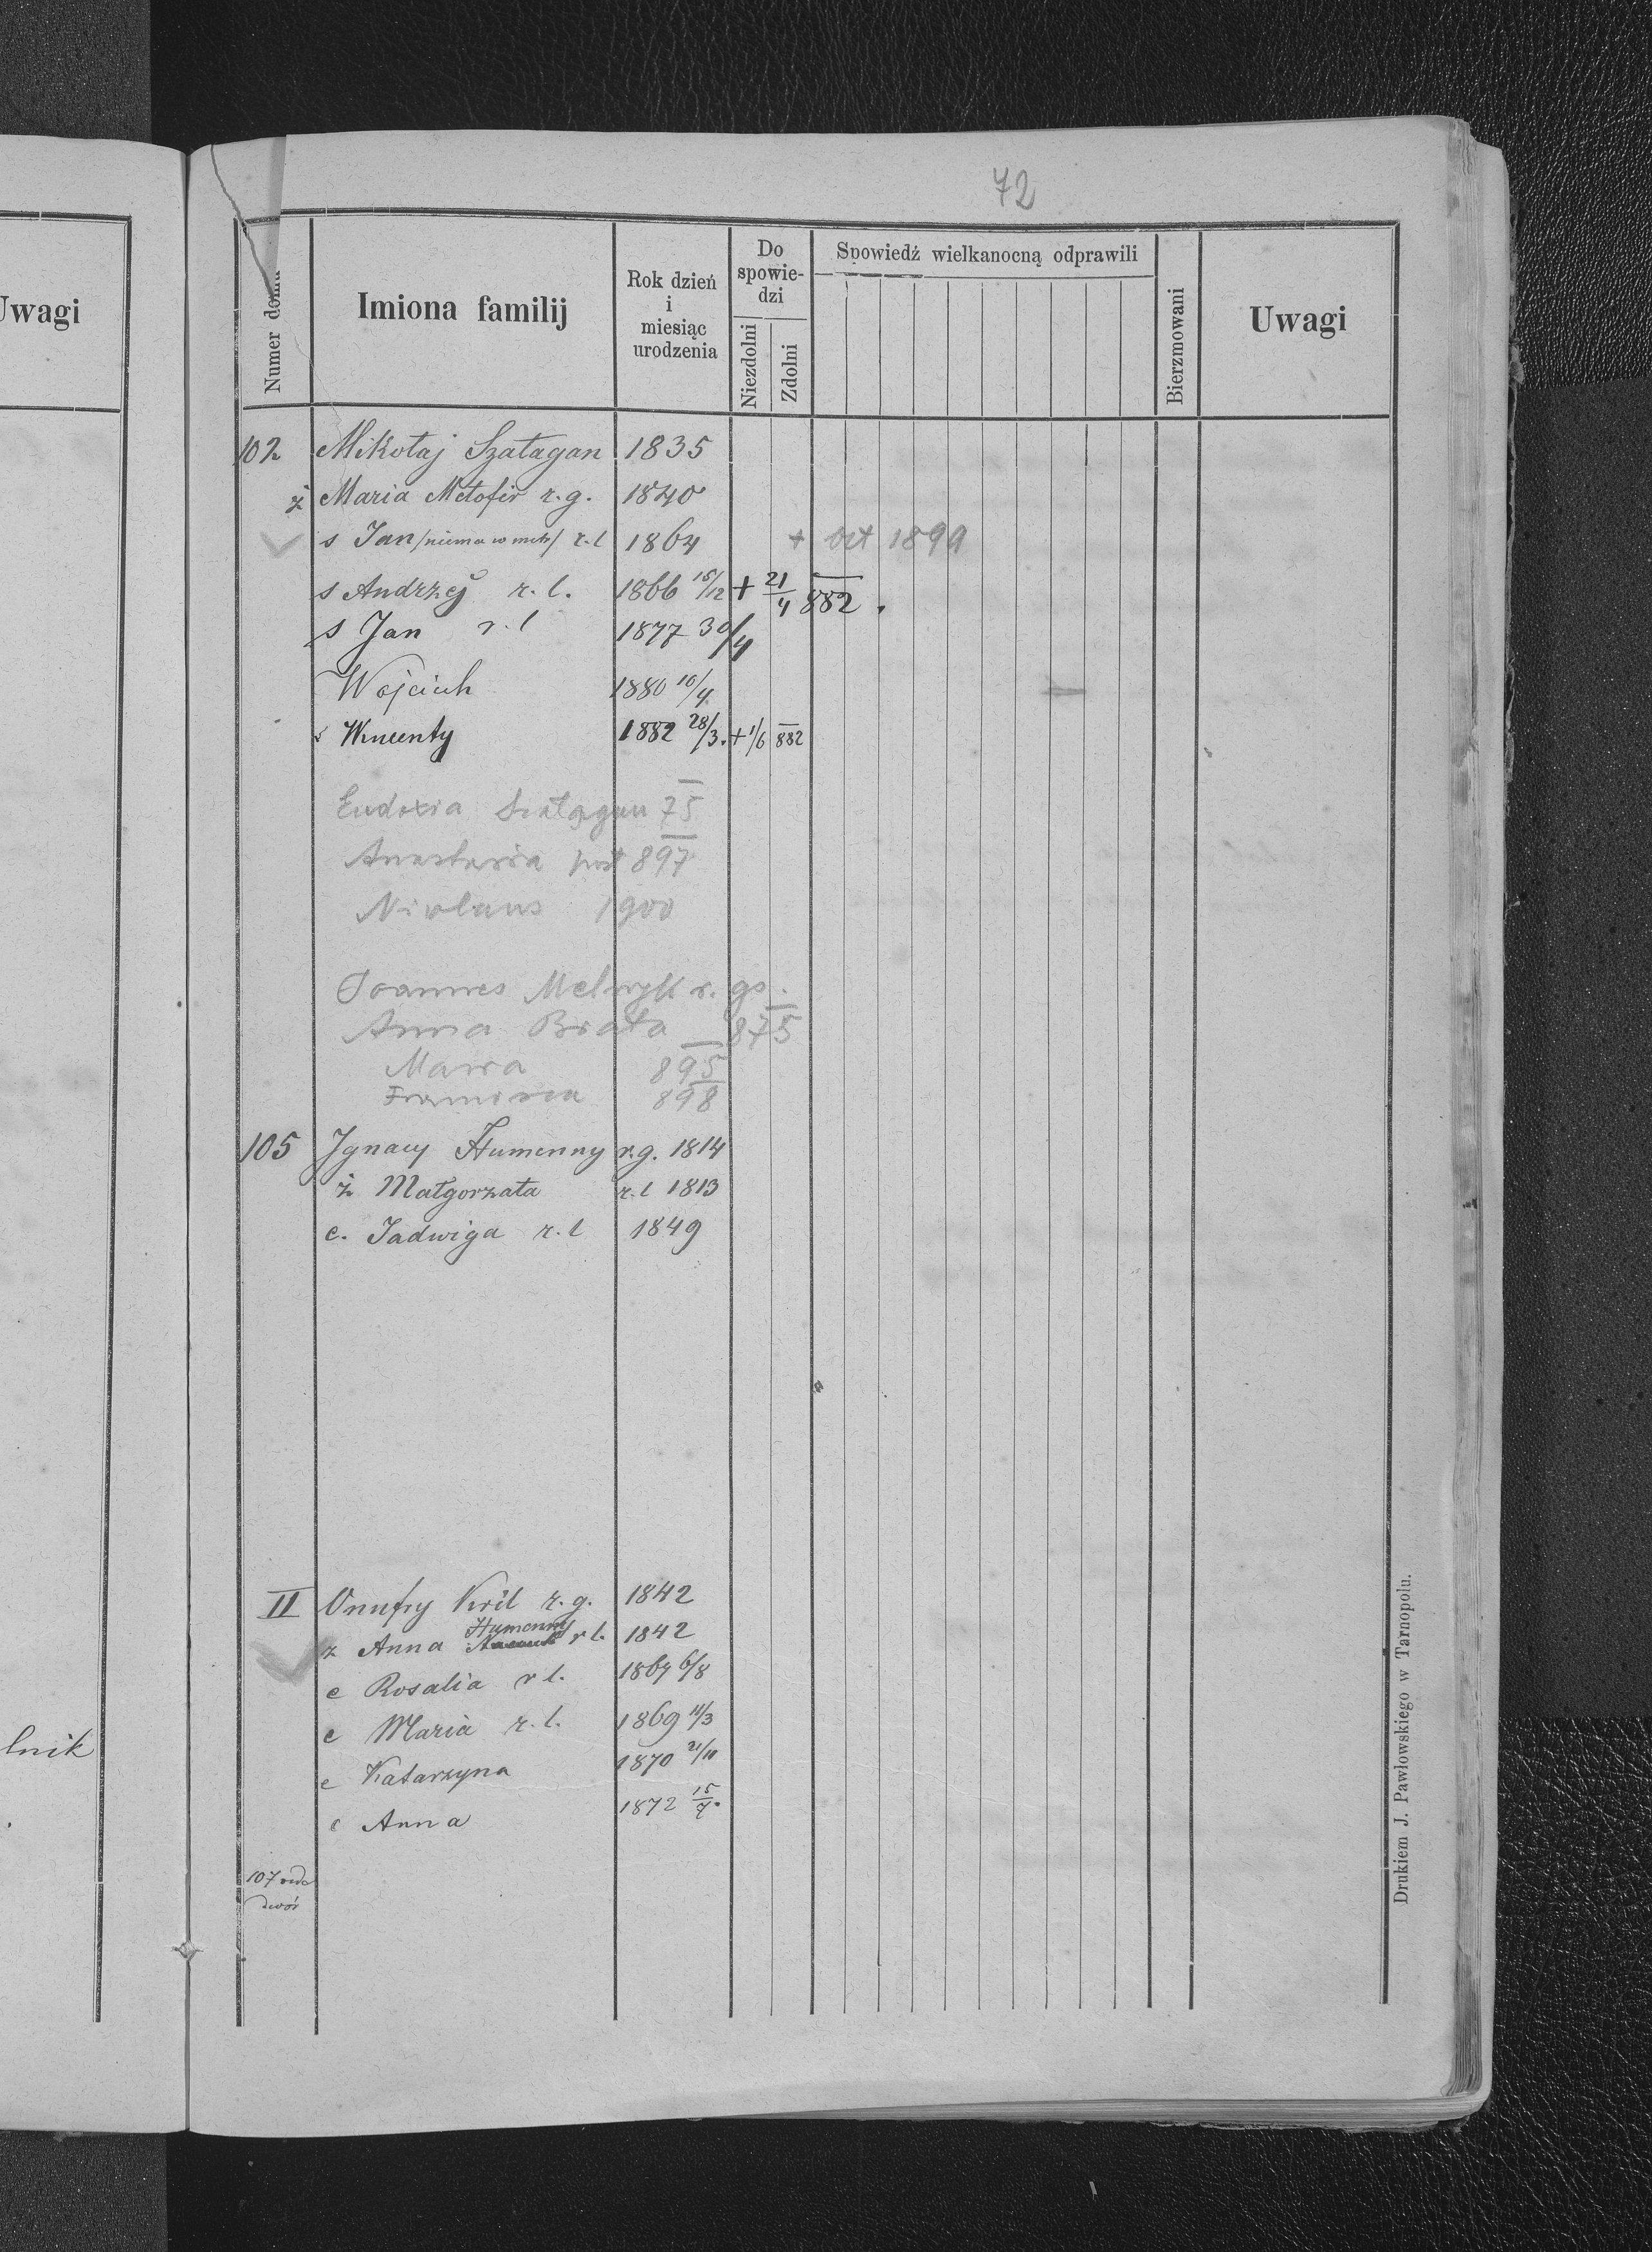 72
Uwagi
lnik
Numer domu
Imiona familij
Rok dzień i miesiąc urodzenia
Do spowiedzi
Niezdolni
Zdolni
Spowiedź wielkanocną odprawili
Bierzmowani
Uwagi
102 Mikołaj Szałagan 1835
ż Maria r. g. 1840
s Jan /niema w metr/ r. l 1864 + oct 1899
s Andrzej r. l. 1866 15/12 + 21/4 882.
s Jan r. l 1877 30/4
Wojciech 1880 10/4
s Wincenty 1882 28/3. + 1/6 882
Eudoxia Szałagan 75
Anastasia post 897
Nicolaus 1900
Joannes Melnyk r. gr.
Anna 875
Maria 895
898
105 Ignacy Humenny r. g. 1814
ż Małgorzata r. l 1813
c. Jadwiga r. l 1849
II Onufry Kril r. g. 1842
ż Anna Humenny r l. 1842
c Rosalia r l. 1867 6/8
c Maria r. l. 1869 11/3
c Katarzyna 1870 21/11
c Anna 1872 15/7.
107
dwór
Drukiem J. Pawłowskiego w Tarnopolu.